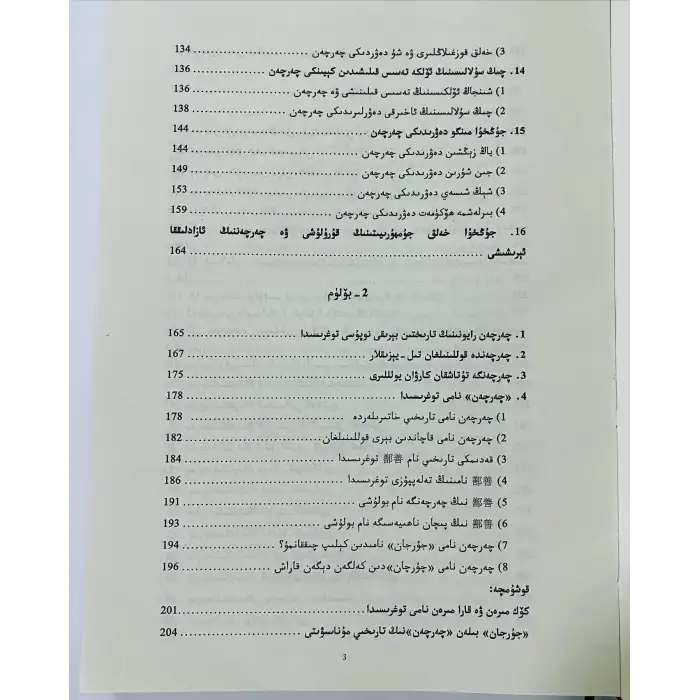 3) خەلق قوزغىلاڭلىرى ۋە شۇ دەۋردىكى چەرچەن ............ 134
14. چىڭ سۇلالىسىنىڭ ئۆلكە تەسىس قىلىشىدىن كېيىنكى چەرچەن ...... 136
1) شىنجاڭ ئۆلكىسىنىڭ تەسىس قىلىنىشى ۋە چەرچەن ............ 136
2) چىڭ سۇلالىسىنىڭ ئاخىرقى دەۋرلىرىدىكى چەرچەن ............ 138
15. جۇڭخۇا مىنگو دەۋرىدىكى چەرچەن ............ 144
1) ياڭ زېڭشىن دەۋرىدىكى چەرچەن ............ 144
2) جىن شۇرىن دەۋرىدىكى چەرچەن ............ 149
3) شېڭ شىسەي دەۋرىدىكى چەرچەن ............ 153
4) بىرلەشمە ھۆكۈمەت دەۋرىدىكى چەرچەن ............ 159
16. جۇڭخۇا خەلق جۇمھۇرىيىتىنىڭ قۇرۇلۇشى ۋە چەرچەننىڭ ئازادلىققا
ئېرىشىشى ............ 164
2 ـ بۆلۈم
1. چەرچەن رايونىنىڭ تارىختىن بېرىقى نوپۇسى توغرىسىدا ............ 165
2. چەرچەندە قوللىنىلغان تىل ـ يېزىقلار ............ 167
3. چەرچەنگە تۇتاشقان كارۋان يوللىرى ............ 175
4. «چەرچەن» نامى توغرىسىدا ............ 178
1) چەرچەن نامى تارىخىي خاتىرىلەردە ............ 178
2) چەرچەن نامى قاچاندىن بېرى قوللىنىلغان ............ 182
3) قەدىمكى تارىخىي نام 鄯善 توغرىسىدا ............ 184
4) 鄯善 نامىنىڭ تەلەپپۇزى توغرىسىدا ............ 186
5) 鄯善 نىڭ چەرچەنگە نام بولۇشى ............ 191
6) 鄯善 نىڭ پىچان ناھىيەسىگە نام بولۇشى ............ 193
7) چەرچەن نامى «جۇرجان» نامىدىن كېلىپ چىققانمۇ؟ ............ 194
8) چەرچەن نامى «جۇرجان»دىن كەلگەن دېگەن قاراش ............ 196
قوشۇمچە:
كۆك مىرەن ۋە قارا مىرەن نامى توغرىسىدا ............ 201
«جۇرجان» بىلەن «چەرچەن»نىڭ تارىخىي مۇناسىۋىتى ............ 204
3